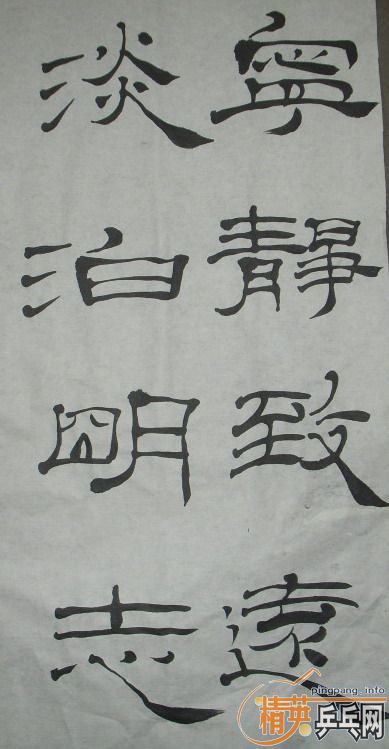 寧靜致遠
淡泊明志
pingpang.info
精英乒乓网